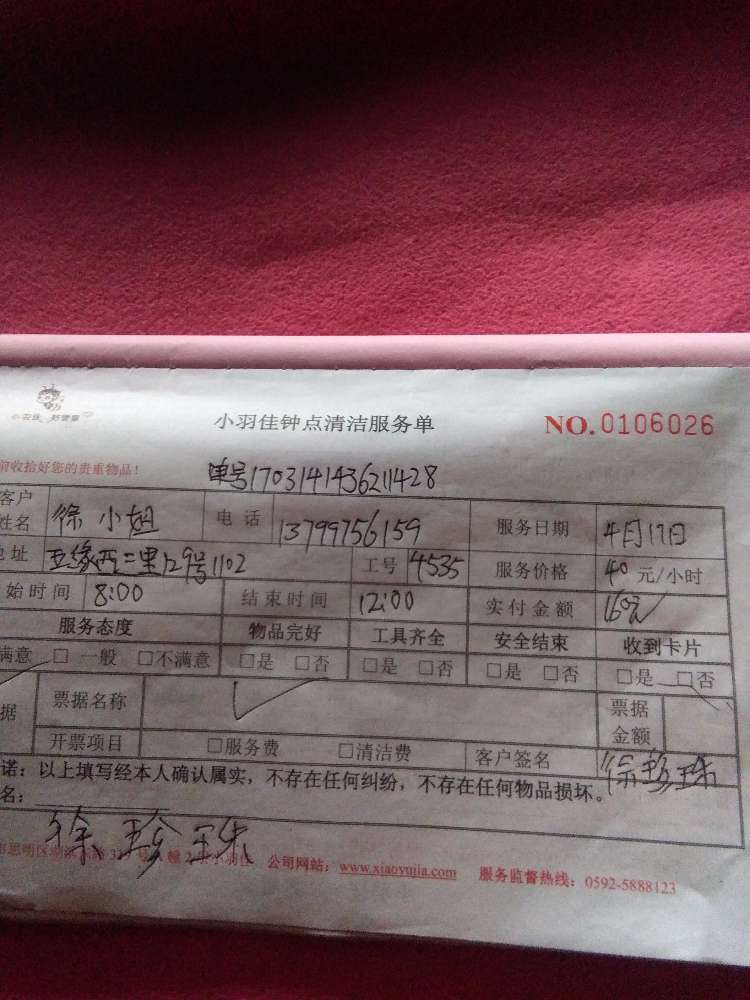 小羽佳 好管家
小羽佳钟点清洁服务单 NO.0106026
前收拾好您的贵重物品! 单号1703141436211428
客户姓名 徐小姐 电话 13799756159 服务日期 4月17日
地址 工号 4535 服务价格 40元/小时
始时间 8:00 结束时间 12:00 实付金额 160元
服务态度 物品完好 工具齐全 安全结束 收到卡片
满意 □ 一般 □不满意 □是 □否 □是 □否 □是 □否 □是 □否
据 票据名称 票据金额
开票项目 □服务费 □清洁费 客户签名 徐珍珠
诺:以上填写经本人确认属实,不存在任何纠纷,不存在任何物品损坏。
名: 徐珍珠
公司网站:www.xiaoyujia.com 服务监督热线:0592-5888123